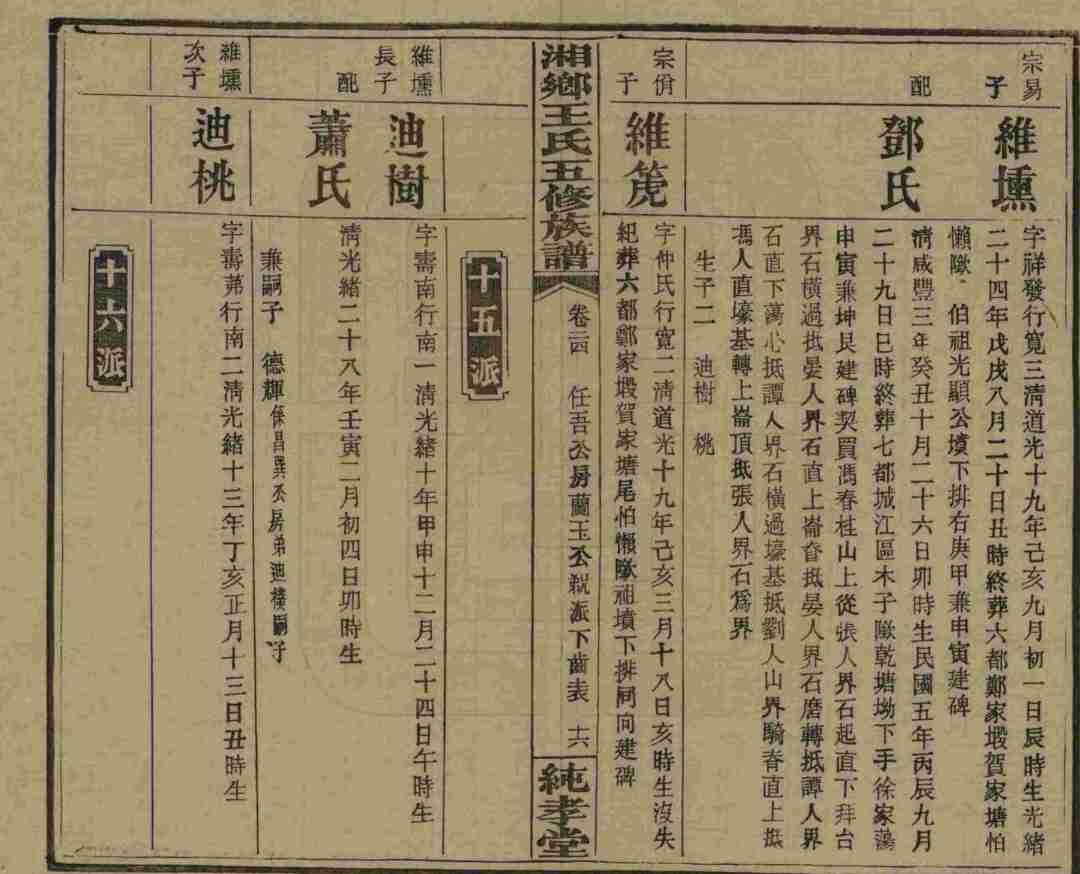 宗易
子
維壎
字祥發行寬三清道光十九年己亥九月初一日辰時生光緒
二十四年戊戌八月二十日丑時終葬六都鄭家塅賀家塘怕
懶陬伯祖光顯公墳下排右庚甲兼申寅建碑
配
鄧氏
清咸豐三年癸丑十月二十六日卯時生民國五年丙辰九月
二十九日巳時終葬七都城江區木子陬乾塘坳下手徐家蕩
申寅兼坤艮建碑契買馮春桂山上從張人界石起直下拜台
界石橫過抵晏人界石直上崙脊抵晏人界石磨轉抵譚人界
石直下蕩心抵譚人界石橫過壕基抵劉人山界騎脊直上抵
馮人直壕基轉上崙頂抵張人界石為界
生子二 迪樹 桃
宗佾
子
維箎
字仲氏行寬二清道光十九年己亥三月十八日亥時生沒失
紀葬六都鄭家塅賀家塘尾怕懶陬祖墳下排同向建碑
湘鄉王氏五修族譜
卷三四 任吾公房蘭玉公親派下齒表 十六
純孝堂
十五派
維壎
長子
迪樹
字壽南行南一清光緒十年甲申十二月二十四日午時生
配
蕭氏
清光緒二十八年壬寅二月初四日卯時生
兼嗣子 德輝係昌異公房弟迪樸嗣子
維壎
次子
迪桃
字壽茀行南二清光緒十三年丁亥正月十三日丑時生
十六派